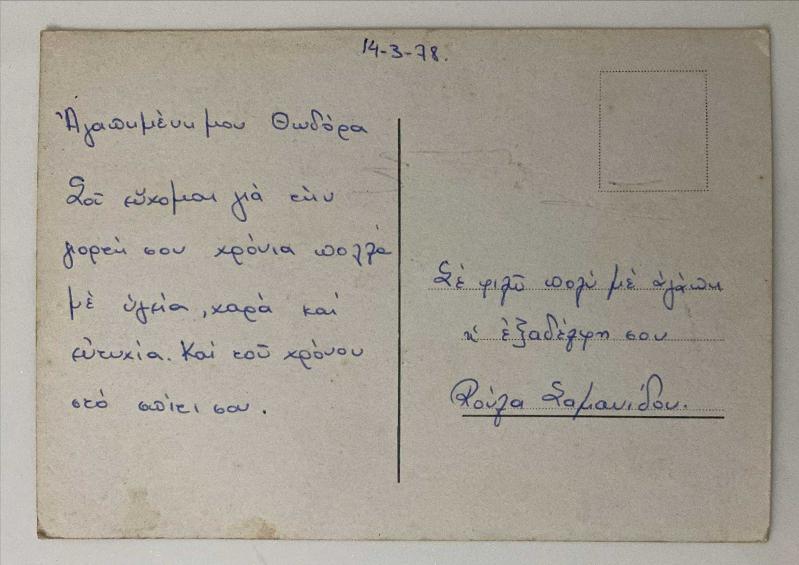 14-3-78.
Ἀγαπημένη μου Θωδόρα
Σοῦ εὔχομαι γιὰ τὴν
γιορτή σου χρόνια πολλά
μὲ ὑγεία, χαρὰ καὶ
εὐτυχία. Καὶ τοῦ χρόνου
στὸ σπίτι σου.
Σὲ φιλῶ πολὺ μὲ ἀγάπη
ἡ ἐξαδέλφη σου
Ρούλα Σαμανίδου.